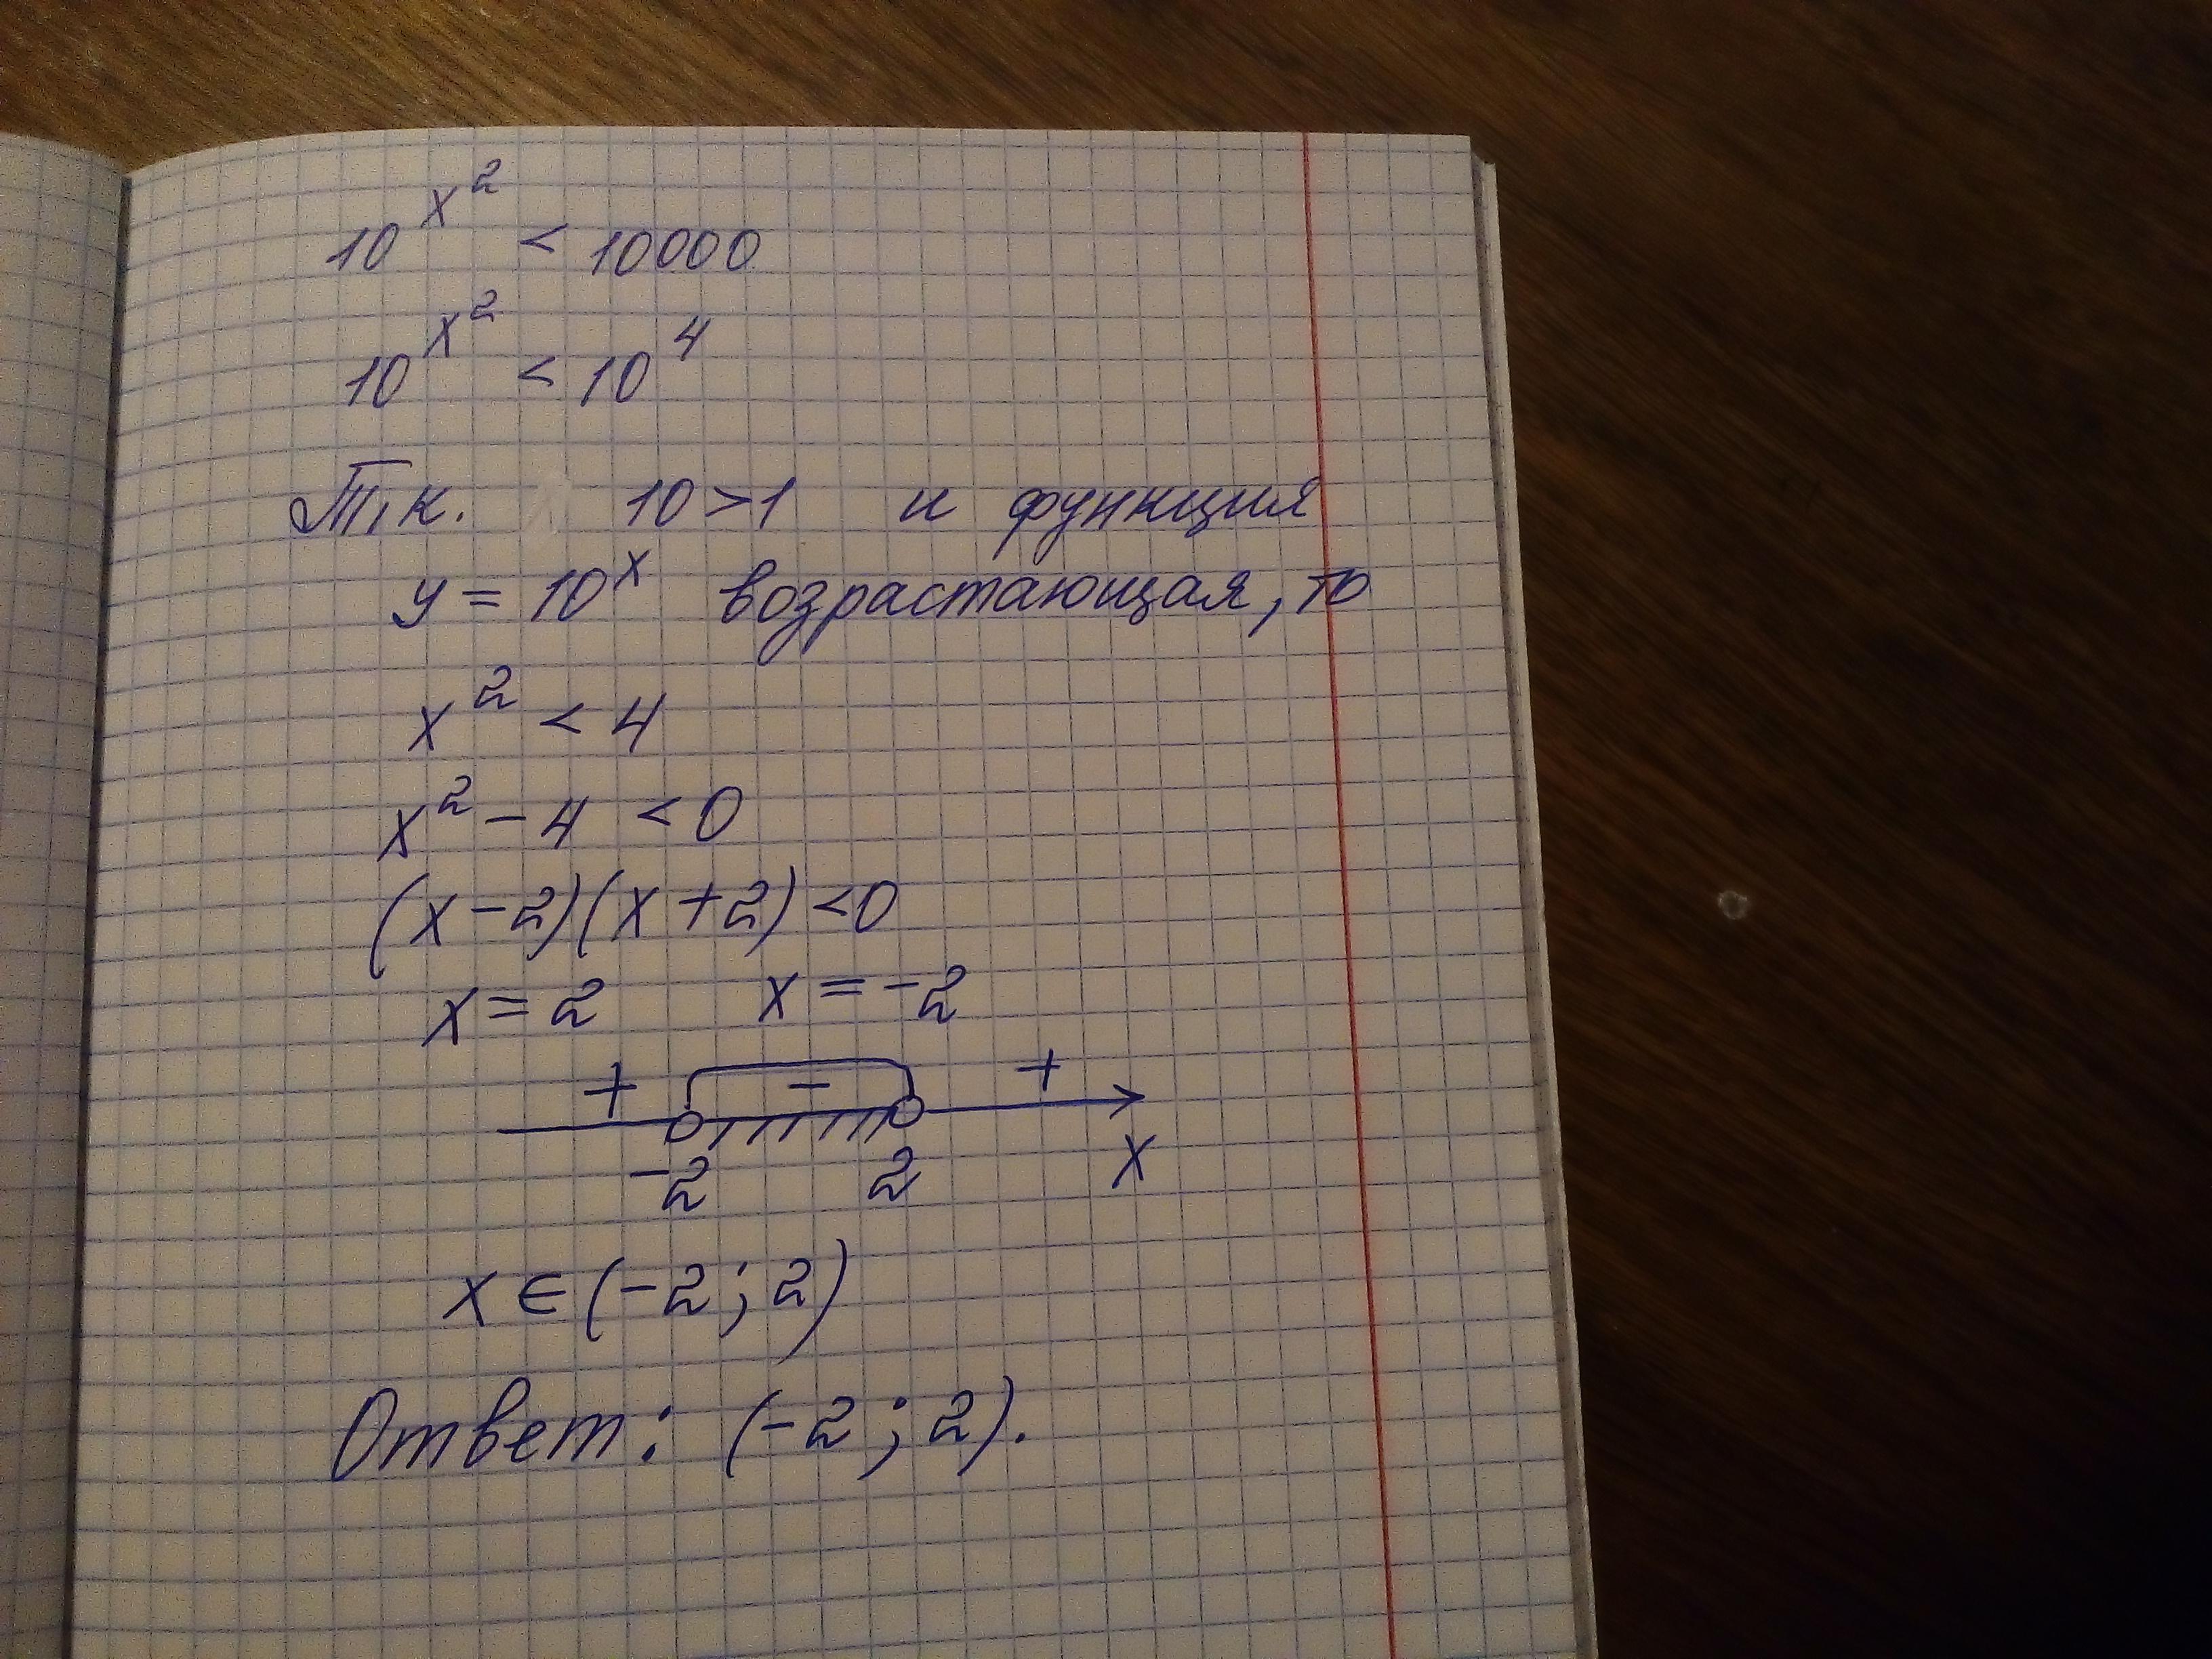 10^{x^2} < 10000
10^{x^2} < 10^4
Т.к. 10 > 1 и функция
y = 10^x возрастающая, то
x^2 < 4
x^2 - 4 < 0
(x - 2)(x + 2) < 0
x = 2 x = -2
+ - +
-2 2 x
x ∈ (-2; 2)
Ответ: (-2; 2).